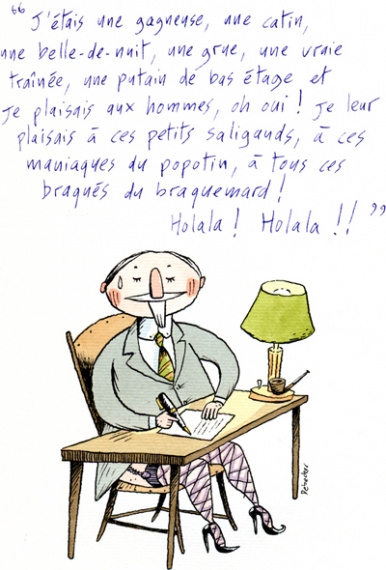 “ J'étais une gagneuse, une catin,
une belle-de-nuit, une grue, une vraie
traînée, une putain de bas étage et
je plaisais aux hommes, oh oui ! Je leur
plaisais à ces petits saligauds, à ces
maniaques du popotin, à tous ces
braqués du braquemard !
Holala ! Holala !! ”